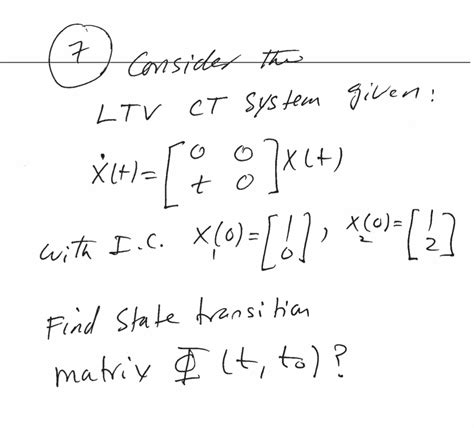 7 Consider the
LTV CT system given:
ẋ(t)=[0 0; t 0]x(t)
with I.C. x₁(0)=[1; 0], x₂(0)=[1; 2]
Find State transition
matrix Φ(t, t₀)?